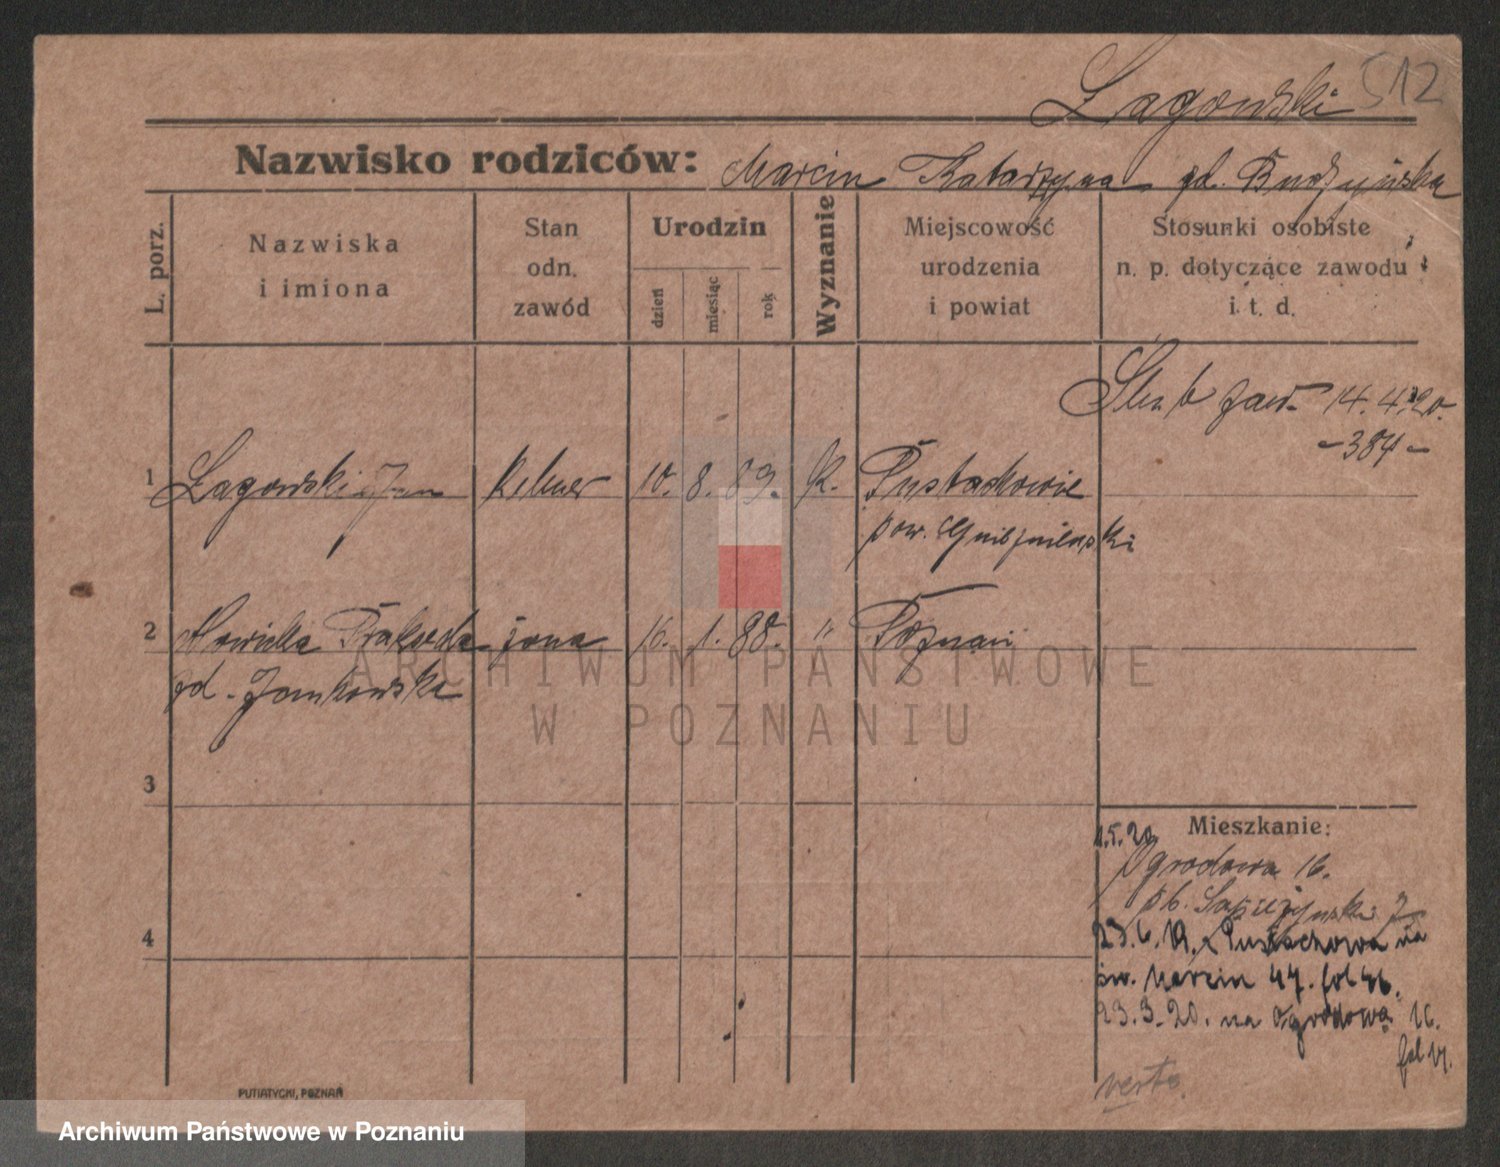 Łagowski 512
Nazwisko rodziców: Marcin Katarzyna gd. Budzyńska
L. porz.
Nazwiska
i imiona
Stan
odn.
zawód
Urodzin
dzień
miesiąc
rok
Wyznanie
Miejscowość
urodzenia
i powiat
Stosunki osobiste
n. p. dotyczące zawodu
i. t. d.
Ślub zaw. 14.4.20.
-384-
1 Łagowski Jan Kelner 10. 8. 89. K. Pustachowie
pow. Gnieźnieński
2 Prakseda żona 16. 1. 88. " Poznań
gd. Jankowska
3
4
Mieszkanie:
1.5.20
Ogrodowa 16.
pb. Sapieżyński 7
23.6.19. z Pustachowa na
św. Marcin 47. fol 46.
23.3.20. na Ogrodowa 16.
fol 17.
verte.
PUTIATYCKI, POZNAŃ
ARCHIWUM PAŃSTWOWE
W POZNANIU
Archiwum Państwowe w Poznaniu